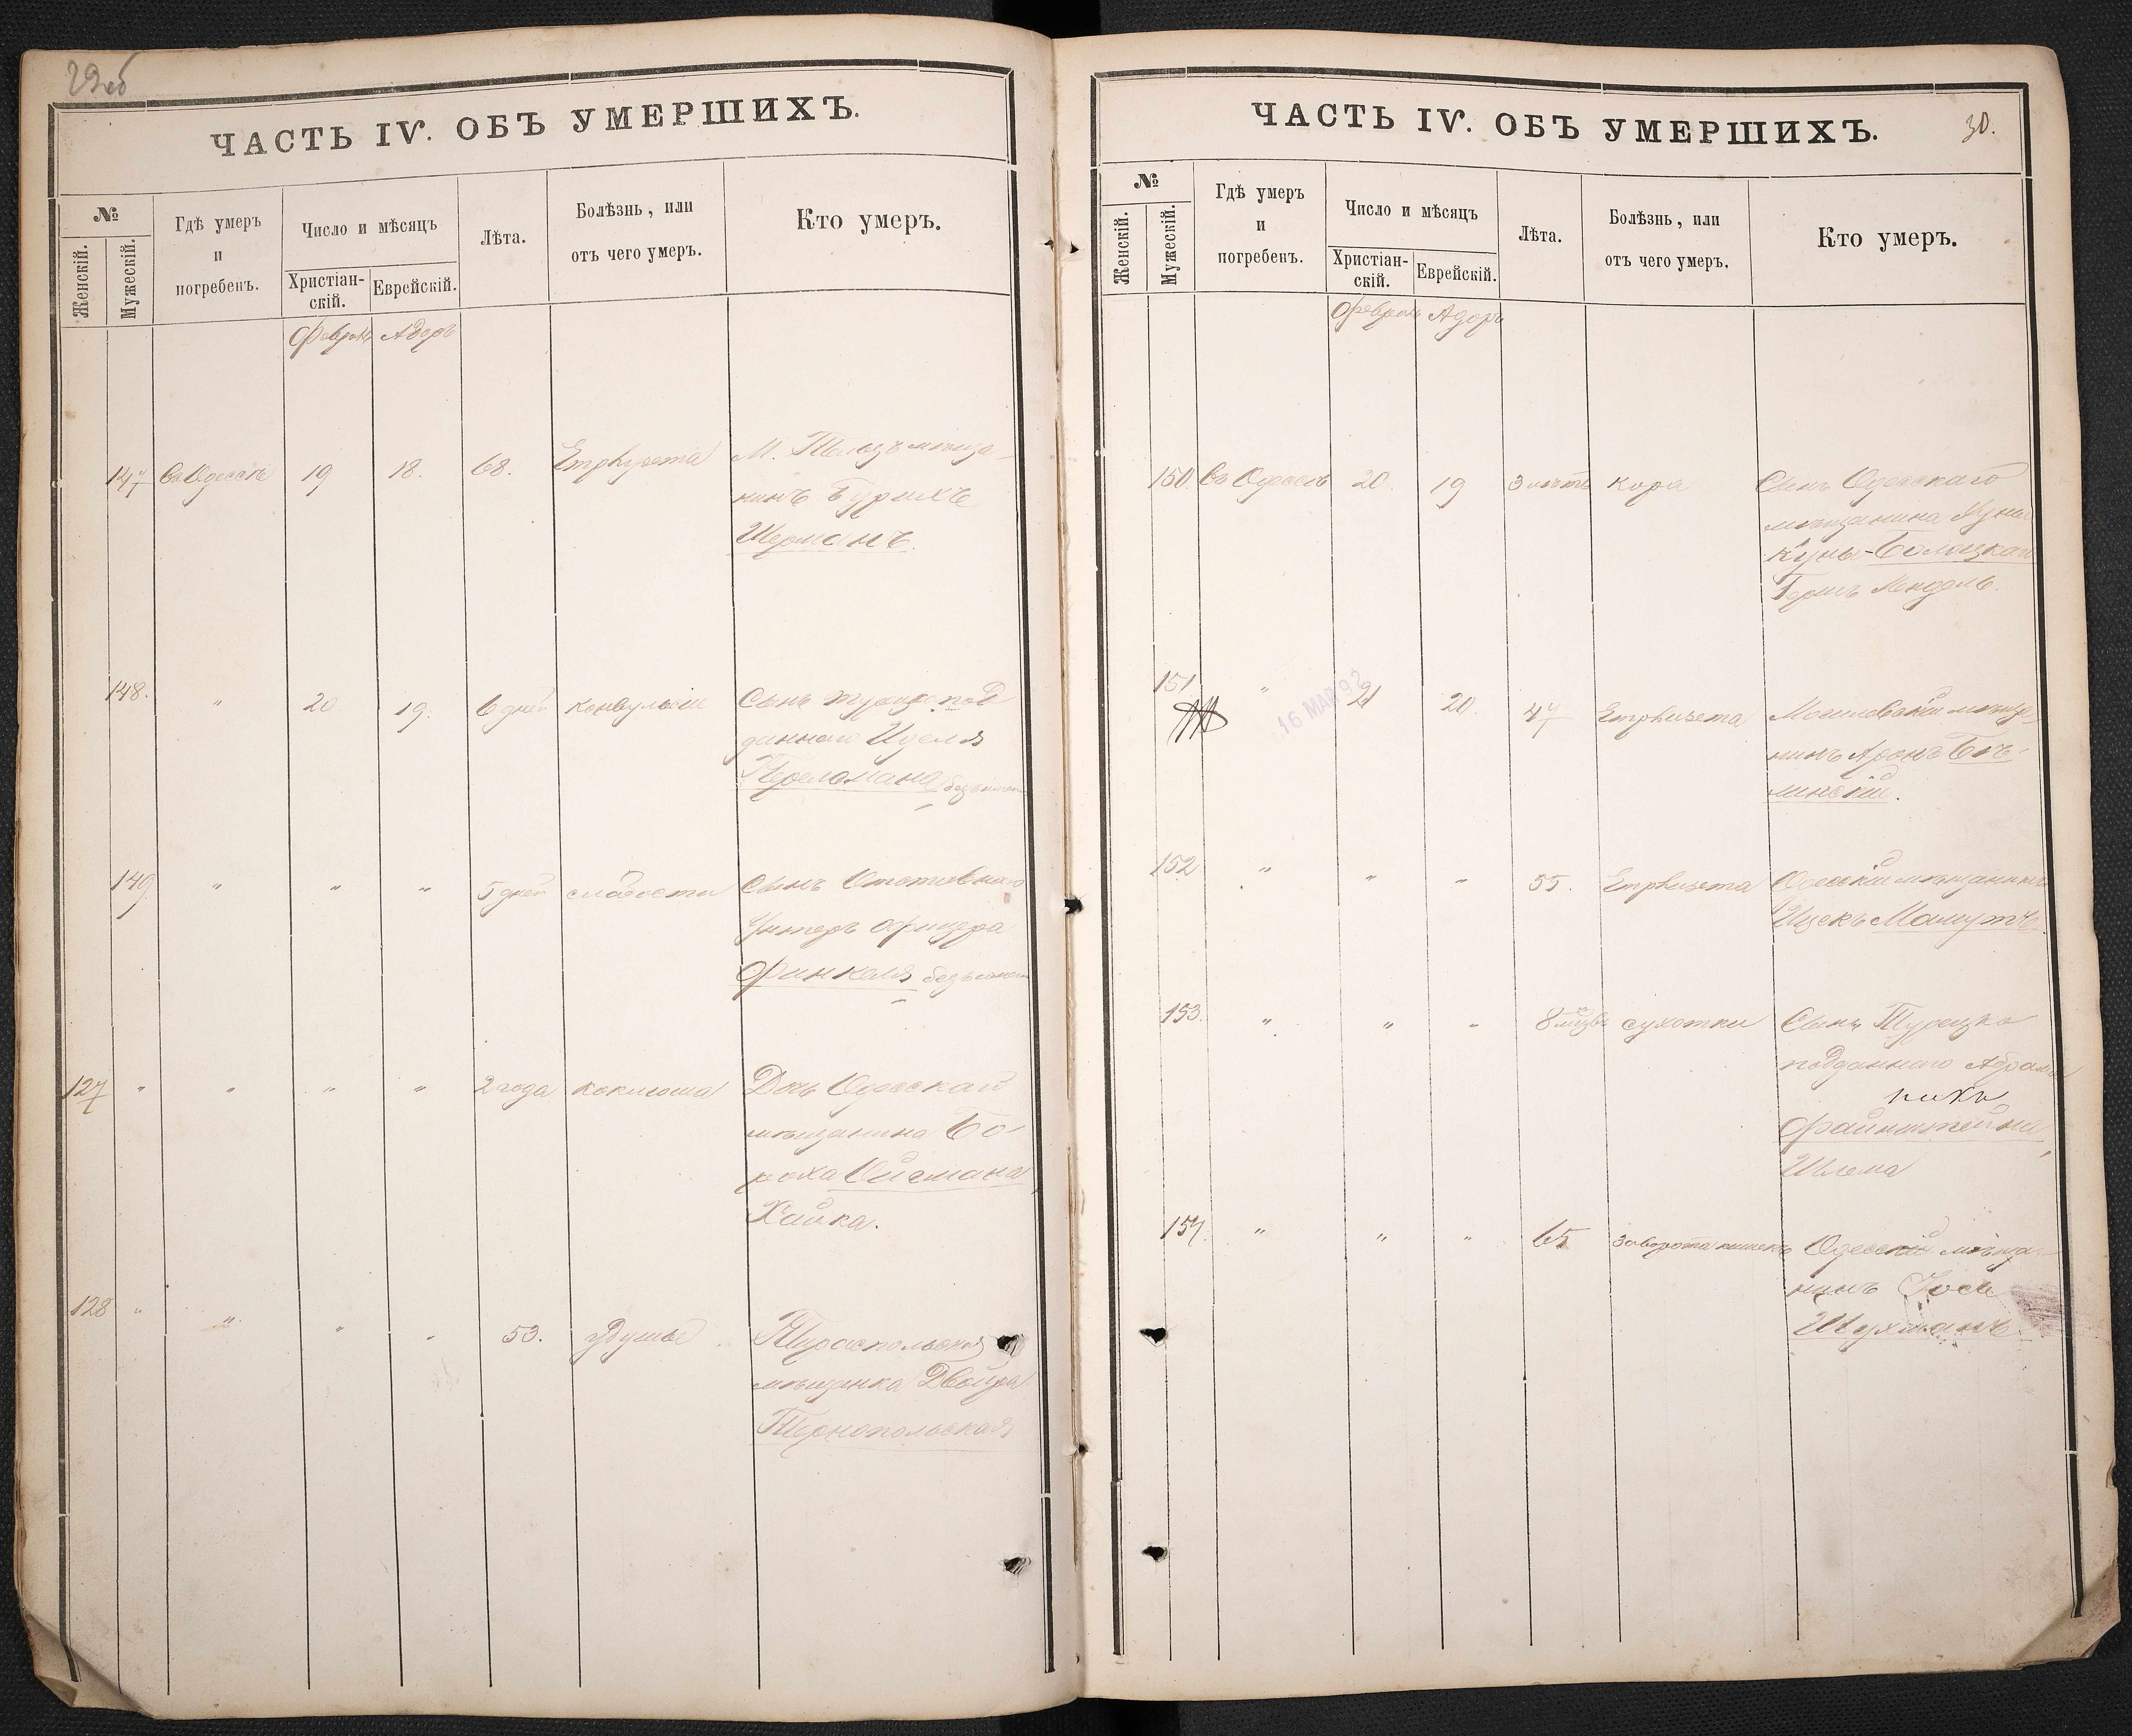 29об
ЧАСТЬ IV. ОБЪ УМЕРШИХЪ.
№
Женскій.
Мужескій.
Гдѣ умеръ
и
погребенъ.
Число и мѣсяцъ
Христіан-
скій.
Еврейскій.
Лѣта.
Болѣзнь, или
отъ чего умеръ.
Кто умеръ.
Февраль Адоръ
147 Въ Одессѣ 19 18. 68. Emphysema М. мѣща-
нинъ Бурихъ
Шерманъ.
148. " 20. 19. 6 дней конвульсіи Сынъ турецк. под
даннаго Иделя
Перельмана безъ имени
149. " " " 5 дней слабости Сынъ Отставнаго
Унтеръ офицера
Финкеля безъ имени
127 " " " " 2 года коклюша Дочь Одесскаго
мѣщанина Бо-
роха Ойгмана,
Хайка.
128 " " " " 53. удушье Тираспольская
мѣщанка Двойра
Тернопольская
ЧАСТЬ IV. ОБЪ УМЕРШИХЪ.
30.
№
Женскій.
Мужескій.
Гдѣ умеръ
и
погребенъ.
Число и мѣсяцъ
Христіан-
скій.
Еврейскій.
Лѣта.
Болѣзнь, или
отъ чего умеръ.
Кто умеръ.
Февраль Адоръ
150. Въ Одессѣ 20. 19 3 лѣтъ кора Сынъ Одесскаго
мѣщанина
Куны-
Герш Мендель.
151. " 21 20. 47 Emphysema мѣща-
16 МАЙ 92
нинъ Аронъ Бѣ-
линскій.
152 " " " 55. Emphysema Одесскій мѣщанинъ
Ицекъ Мамутъ.
153. " " " 8 мѣсяц. сухотки Сынъ Турецко
подданнаго Абрама
Файнштейна,
Шлема
154. " " " 65 заворота кишекъ Одесскій мѣща-
нинъ Іось
Шухманъ.